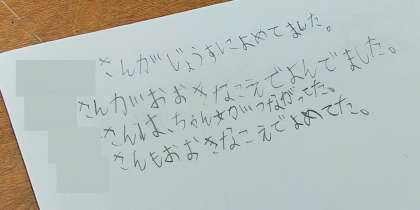 さんがじょうずによめてました。
さんがおおきなこえでよんでました。
さんは、ちゃんとつながってた。
さんもおおきなこえでよめてた。